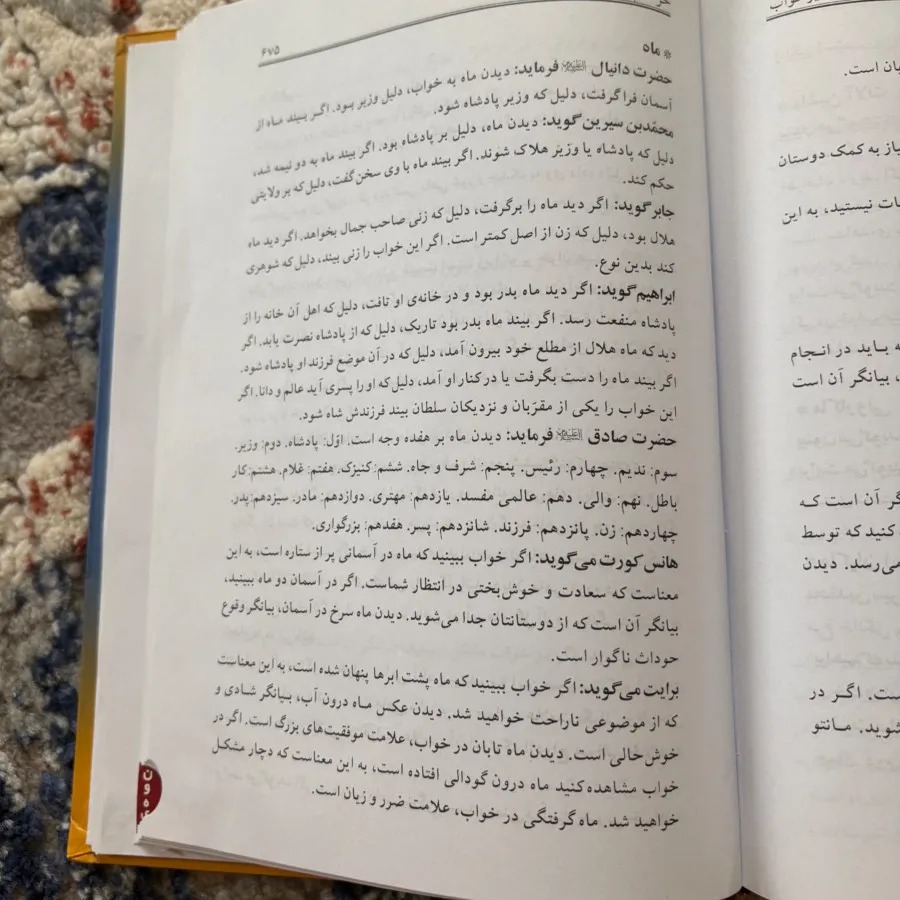 ۶۷۵
* ماه
حضرت دانیال علیه‌السلام فرماید: دیدن ماه به خواب، دلیل وزیر بود. اگر بیند ماه از
آسمان فرا گرفت، دلیل که وزیر پادشاه شود.
محمّدبن سیرین گوید: دیدن ماه، دلیل بر پادشاه بود. اگر بیند ماه به دو نیمه شد،
دلیل که پادشاه یا وزیر هلاک شوند. اگر بیند ماه با وی سخن گفت، دلیل که بر ولایتی
حکم کند.
جابر گوید: اگر دید ماه را برگرفت، دلیل که زنی صاحب جمال بخواهد. اگر دید ماه
هلال بود، دلیل که زن از اصل کمتر است. اگر این خواب را زنی بیند، دلیل که شوهری
کند بدین نوع.
ابراهیم گوید: اگر دید ماه بدر بود و در خانه‌ی او تافت، دلیل که اهل آن خانه را از
پادشاه منفعت رسد. اگر بیند ماه بدر بود تاریک، دلیل که از پادشاه نصرت یابد. اگر
دید که ماه هلال از مطلع خود بیرون آمد، دلیل که در آن موضع فرزند او پادشاه شود.
اگر بیند ماه را دست بگرفت یا در کنار او آمد، دلیل که او را پسری آید عالم و دانا. اگر
این خواب را یکی از مقرّبان و نزدیکان سلطان بیند فرزندش شاه شود.
حضرت صادق علیه‌السلام فرماید: دیدن ماه بر هفده وجه است. اوّل: پادشاه. دوم: وزیر.
سوم: ندیم. چهارم: رئیس. پنجم: شرف و جاه. ششم: کنیزک. هفتم: غلام. هشتم: کار
باطل. نهم: والی. دهم: عالمی مفسد. یازدهم: مهتری. دوازدهم: مادر. سیزدهم: پدر.
چهاردهم: زن. پانزدهم: فرزند. شانزدهم: پسر. هفدهم: بزرگواری.
هانس کورت می‌گوید: اگر خواب ببینید که ماه در آسمانی پر از ستاره است، به این
معناست که سعادت و خوش‌بختی در انتظار شماست. اگر در آسمان دو ماه ببینید،
بیانگر آن است که از دوستانتان جدا می‌شوید. دیدن ماه سرخ در آسمان، بیانگر وقوع
حوداث ناگوار است.
برایت می‌گوید: اگر خواب ببینید که ماه پشت ابرها پنهان شده است، به این معناست
که از موضوعی ناراحت خواهید شد. دیدن عکس ماه درون آب، بیانگر شادی و
خوش‌حالی است. دیدن ماه تابان در خواب، علامت موفقیت‌های بزرگ است. اگر در
خواب مشاهده کنید ماه درون گودالی افتاده است، به این معناست که دچار مشکل
خواهید شد. ماه گرفتگی در خواب، علامت ضرر و زیان است.
ن
و
ه
خواب
است.
به کمک دوستان
نیستید، به این
باید در انجام
بیانگر آن است
آن است که
کنید که توسط
می‌رسد. دیدن
اگر در
شوید. مانتو